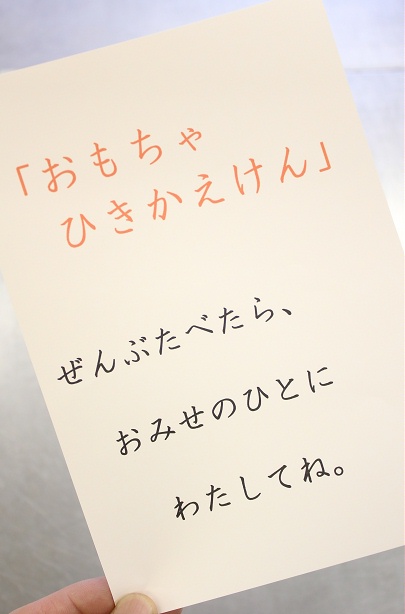 「おもちゃ
ひきかえけん」
ぜんぶたべたら、
おみせのひとに
わたしてね。